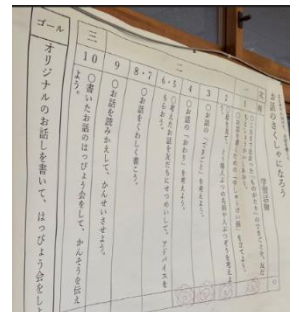 お話のさくしゃになろう
次
時
学習活動
一
1
二
2
3
○お話の「できごと」を考えよう。
4
○お話の「おわり」を考えよう。
5
・6
○考えたお話を友だちにせつめいして、アドバイスを
もらおう。
7・8
○お話をくわしく書こう。
9
○お話を読みかえして、かんせいさせよう。
三
10
○書いたお話のはっぴょう会をして、かんそうを伝え
よう。
ゴール
オリジナルのお話しを書いて、はっぴょう会をしよ